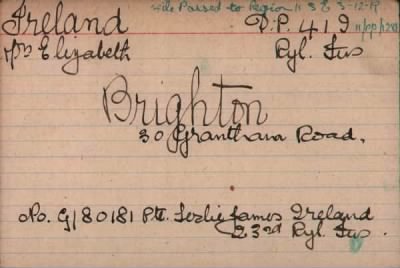 File Passed to Region 11 S E 3-12-19
Ireland D.P. 419
Mrs Elizabeth Ryl. Fus
Brighton
30 Grantham Road.
No. G/80181 Pte. Leslie James Ireland
23rd Ryl. Fus.